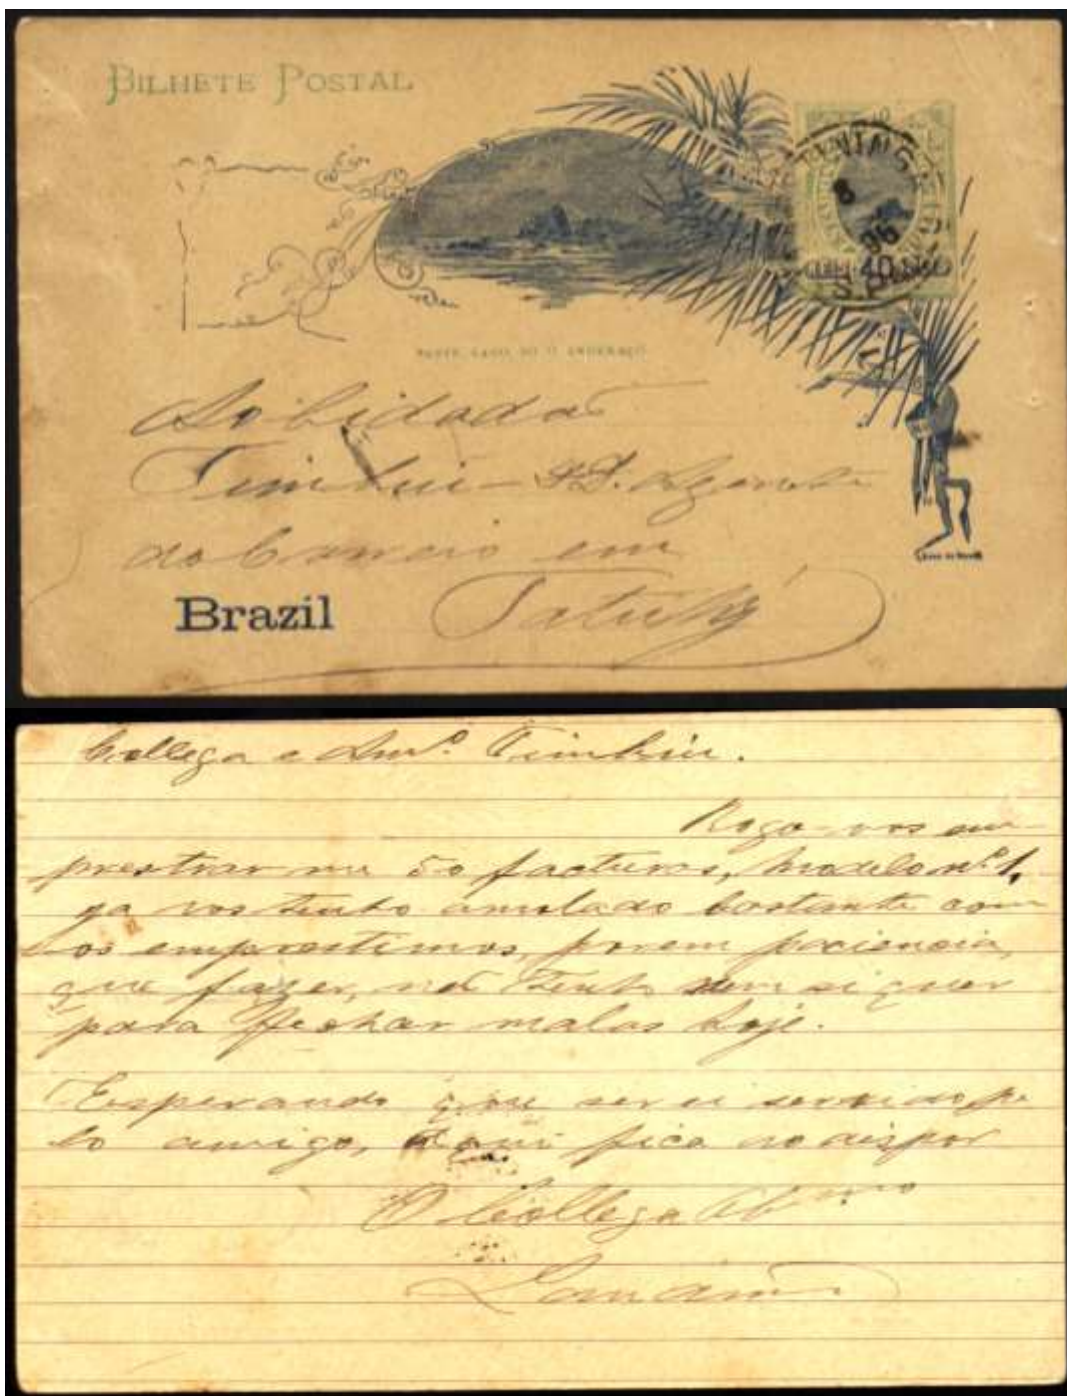 BILHETE POSTAL
8
96
40
Ao Cidadão
Timbui - D. Agente
do Correio em
Brazil
Tatuhy
Collega e Amº. Timbui.
Rogo-vos em-
prestrar me 50 facturas, modelo nº. 1,
ja vos tenho amolado bastante com
os emprestimos, porem paciencia,
que fazer, não tenho nem si quer
para fechar malas hoje.
Esperando que serei servido pe
lo amigo, fica ao dispor
O Collega